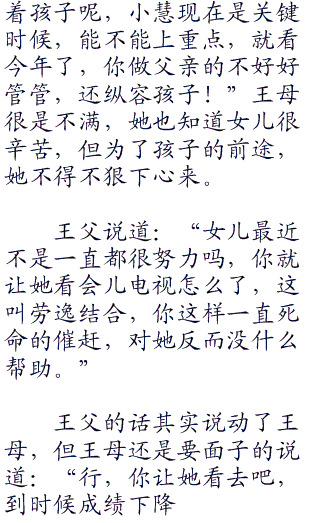 着孩子呢，小慧现在是关键
时候，能不能上重点，就看
今年了，你做父亲的不好好
管管，还纵容孩子！”王母
很是不满，她也知道女儿很
辛苦，但为了孩子的前途，
她不得不狠下心来。
王父说道：“女儿最近
不是一直都很努力吗，你就
让她看会儿电视怎么了，这
叫劳逸结合，你这样一直死
命的催赶，对她反而没什么
帮助。”
王父的话其实说动了王
母，但王母还是要面子的说
道：“行，你让她看去吧，
到时候成绩下降